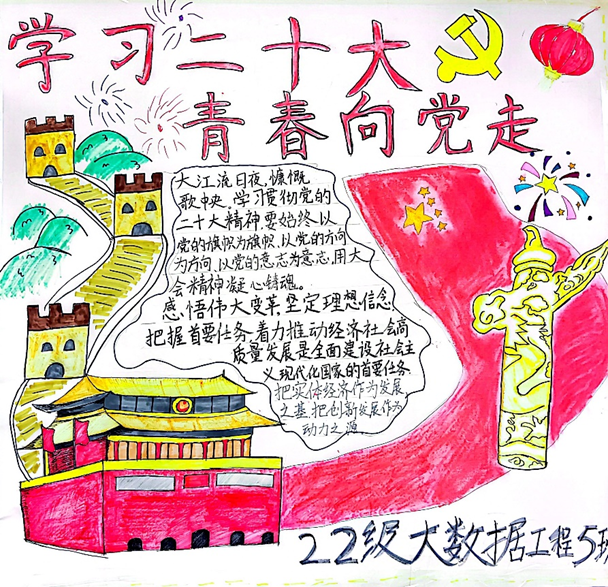 学习二十大
青春向党走
大江流日夜,慷慨
歌中央,学习贯彻党的
二十大精神,要始终以
党的旗帜为旗帜,以党的方向
为方向,以党的意志为意志,用大
会精神凝心铸魂。
感悟伟大变革,坚定理想信念
把握首要任务,着力推动经济社会高
质量发展是全面建设社会主
义现代化国家的首要任务
把实体经济作为发展
之基,把创新发展作为
动力之源
22级大数据工程5班